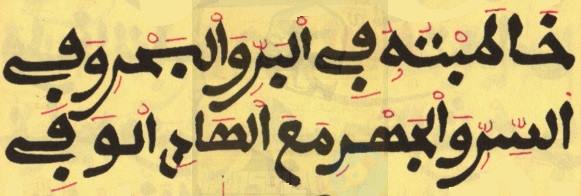 خَاطَبْتُهُ فِي الْبَرِّ وَالْبَحْرِ وَفِي
السِّرِّ وَالْجَهْرِ مَعَ الْهَادِ الْوَفِي